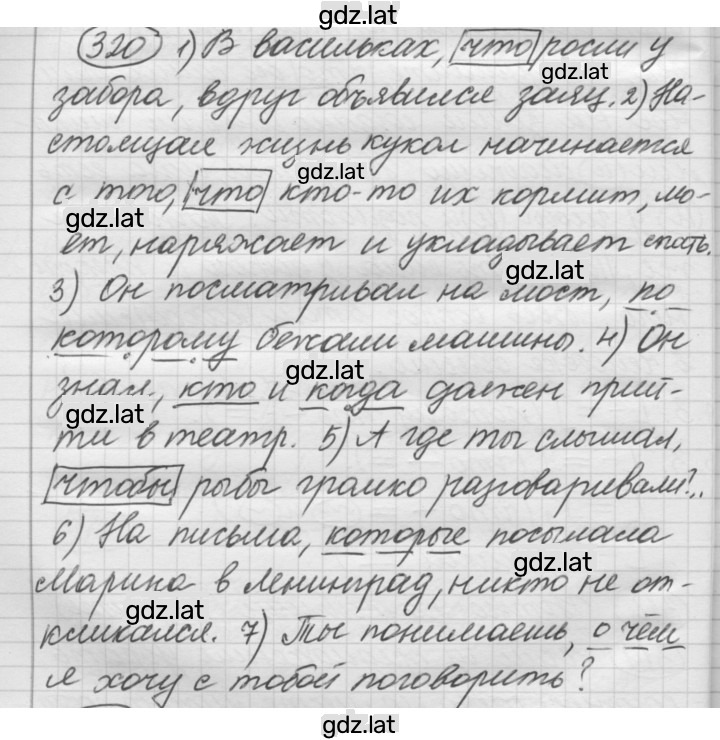 gdz.lat
320 1) В васильках, что росли у
gdz.lat
забора, вдруг объявился заяц. 2) На-
стоящая жизнь кукол начинается
gdz.lat
с того, что кто-то их кормит, мо-
gdz.lat
ет, наряжает и укладывает спать.
gdz.lat
3) Он посматривал на мост, по
которому бежали машины. 4) Он
gdz.lat
знал, кто и когда должен прий-
gdz.lat
ти в театр. 5) А где ты слышал,
чтобы рыбы громко разговаривали?..
6) На письма, которые посылала
gdz.lat
Марина в Ленинград, никто не от-
gdz.lat
кликался. 7) Ты понимаешь, о чём
я хочу с тобой поговорить?
gdz.lat